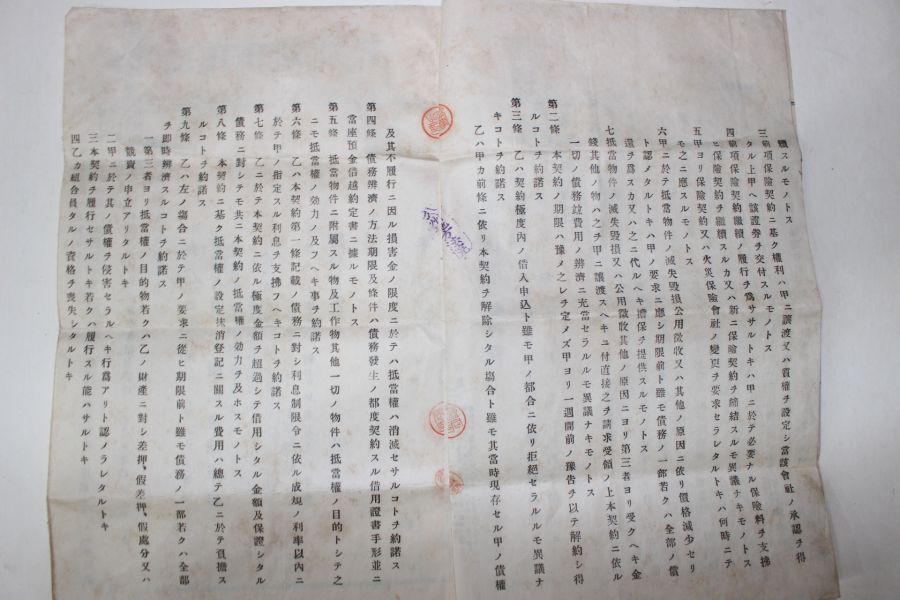 職スルモノトス
三前項保險契約ニ基ク權利ハ甲ニ讓渡又ハ質權ヲ設定シ當該會社ノ承認ヲ得
タル上甲ヘ該證券ヲ交付スルモノトス
四前項保險契約繼續ノ履行ヲ爲サヽルトキハ甲ニ於テ必要ナル保險料ヲ支拂
ヒ保險契約ヲ繼續スルカ又ハ新ニ保險契約ヲ締結スルモ異議ナキモノトス
五甲ヨリ保險契約又ハ火災保險會社ノ變更ヲ要求セラレタルトキハ何時ニテ
モ之ニ應スルモノトス
六甲ニ於テ抵當物件ノ滅失毀損公用徵收又ハ其他ノ原因ニ依リ價格減少セリ
ト認メタルトキハ甲ノ要求ニ應シ期限前ト雖モ債務ノ一部若クハ全部ノ償
還ヲ爲スカ又ハ之ニ代ルヘキ擔保ヲ提供スルモノトス
七抵當物件ノ滅失毀損又ハ公用徵收其他ノ原因ニヨリ第三者ヨリ受クヘキ金
錢其他ノ物ハ之ヲ甲ニ讓渡スヘキニ付直接之ヲ請求受領ノ上本契約ニ依ル
一切ノ債務竝費用ノ辨濟ニ充當セラルルモ異議ナキモノトス
第二條 本契約ノ期限ハ豫メ之レヲ定メズ甲ヨリ一週間前ノ豫告ヲ以テ解約シ得
ルコトヲ約諾ス
第三條 乙ハ契約極度內ノ借入申込ト雖モ甲ノ都合ニ依リ拒絕セラルルモ異議ナ
キコトヲ約諾ス
乙ハ甲カ前條ニ依リ本契約ヲ解除シタル塲合ト雖モ其當時現存セル甲ノ債權
及其不履行ニ因ル損害金ノ限度ニ於テハ抵當權ハ消滅セサルコトヲ約諾ス
第四條 債務辨濟ノ方法期限及條件ハ債務發生ノ都度契約スル借用證書手形並ニ
當座預金借越約定書ニ據ルモノトス
第五條 抵當物件ニ附屬スル物及工作物其他一切ノ物件ハ抵當權ノ目的トシテ之
ニモ抵當權ノ効力ノ及フヘキ事ヲ約諾ス
第六條 乙ハ本契約第一條記載ノ債務ニ對シ利息制限令ニ依ル成規ノ利率以內ニ
於テ甲ノ指定スル利息ヲ支拂フヘキコトヲ約諾ス
第七條 乙ニ於テ本契約ニ依ル極度金額ヲ超過シテ借用シタル金額及保證シタル
債務ニ對シテモ共ニ本契約ノ抵當權ノ効力ヲ及ホスモノトス
第八條 本契約ニ基ク抵當權ノ設定抹消登記ニ關スル費用ハ總テ乙ニ於テ負擔ス
ルコトヲ約諾ス
第九條 乙ハ左ノ塲合ニ於テ甲ノ要求ニ從ヒ期限前ト雖モ債務ノ一部若クハ全部
ヲ即時辨濟スルコトヲ約諾ス
一第三者ヨリ抵當權ノ目的物若クハ乙ノ財產ニ對シ差押、假差押、假處分又ハ
競賣ノ申立アリタルトキ
二甲ニ於テ其ノ債權ヲ侵害セラルヘキ行爲アリト認メラレタルトキ
三本契約ヲ履行セサルトキ若クハ履行スル能ハサルトキ
四乙カ組合員タルノ資格ヲ喪失シタルトキ